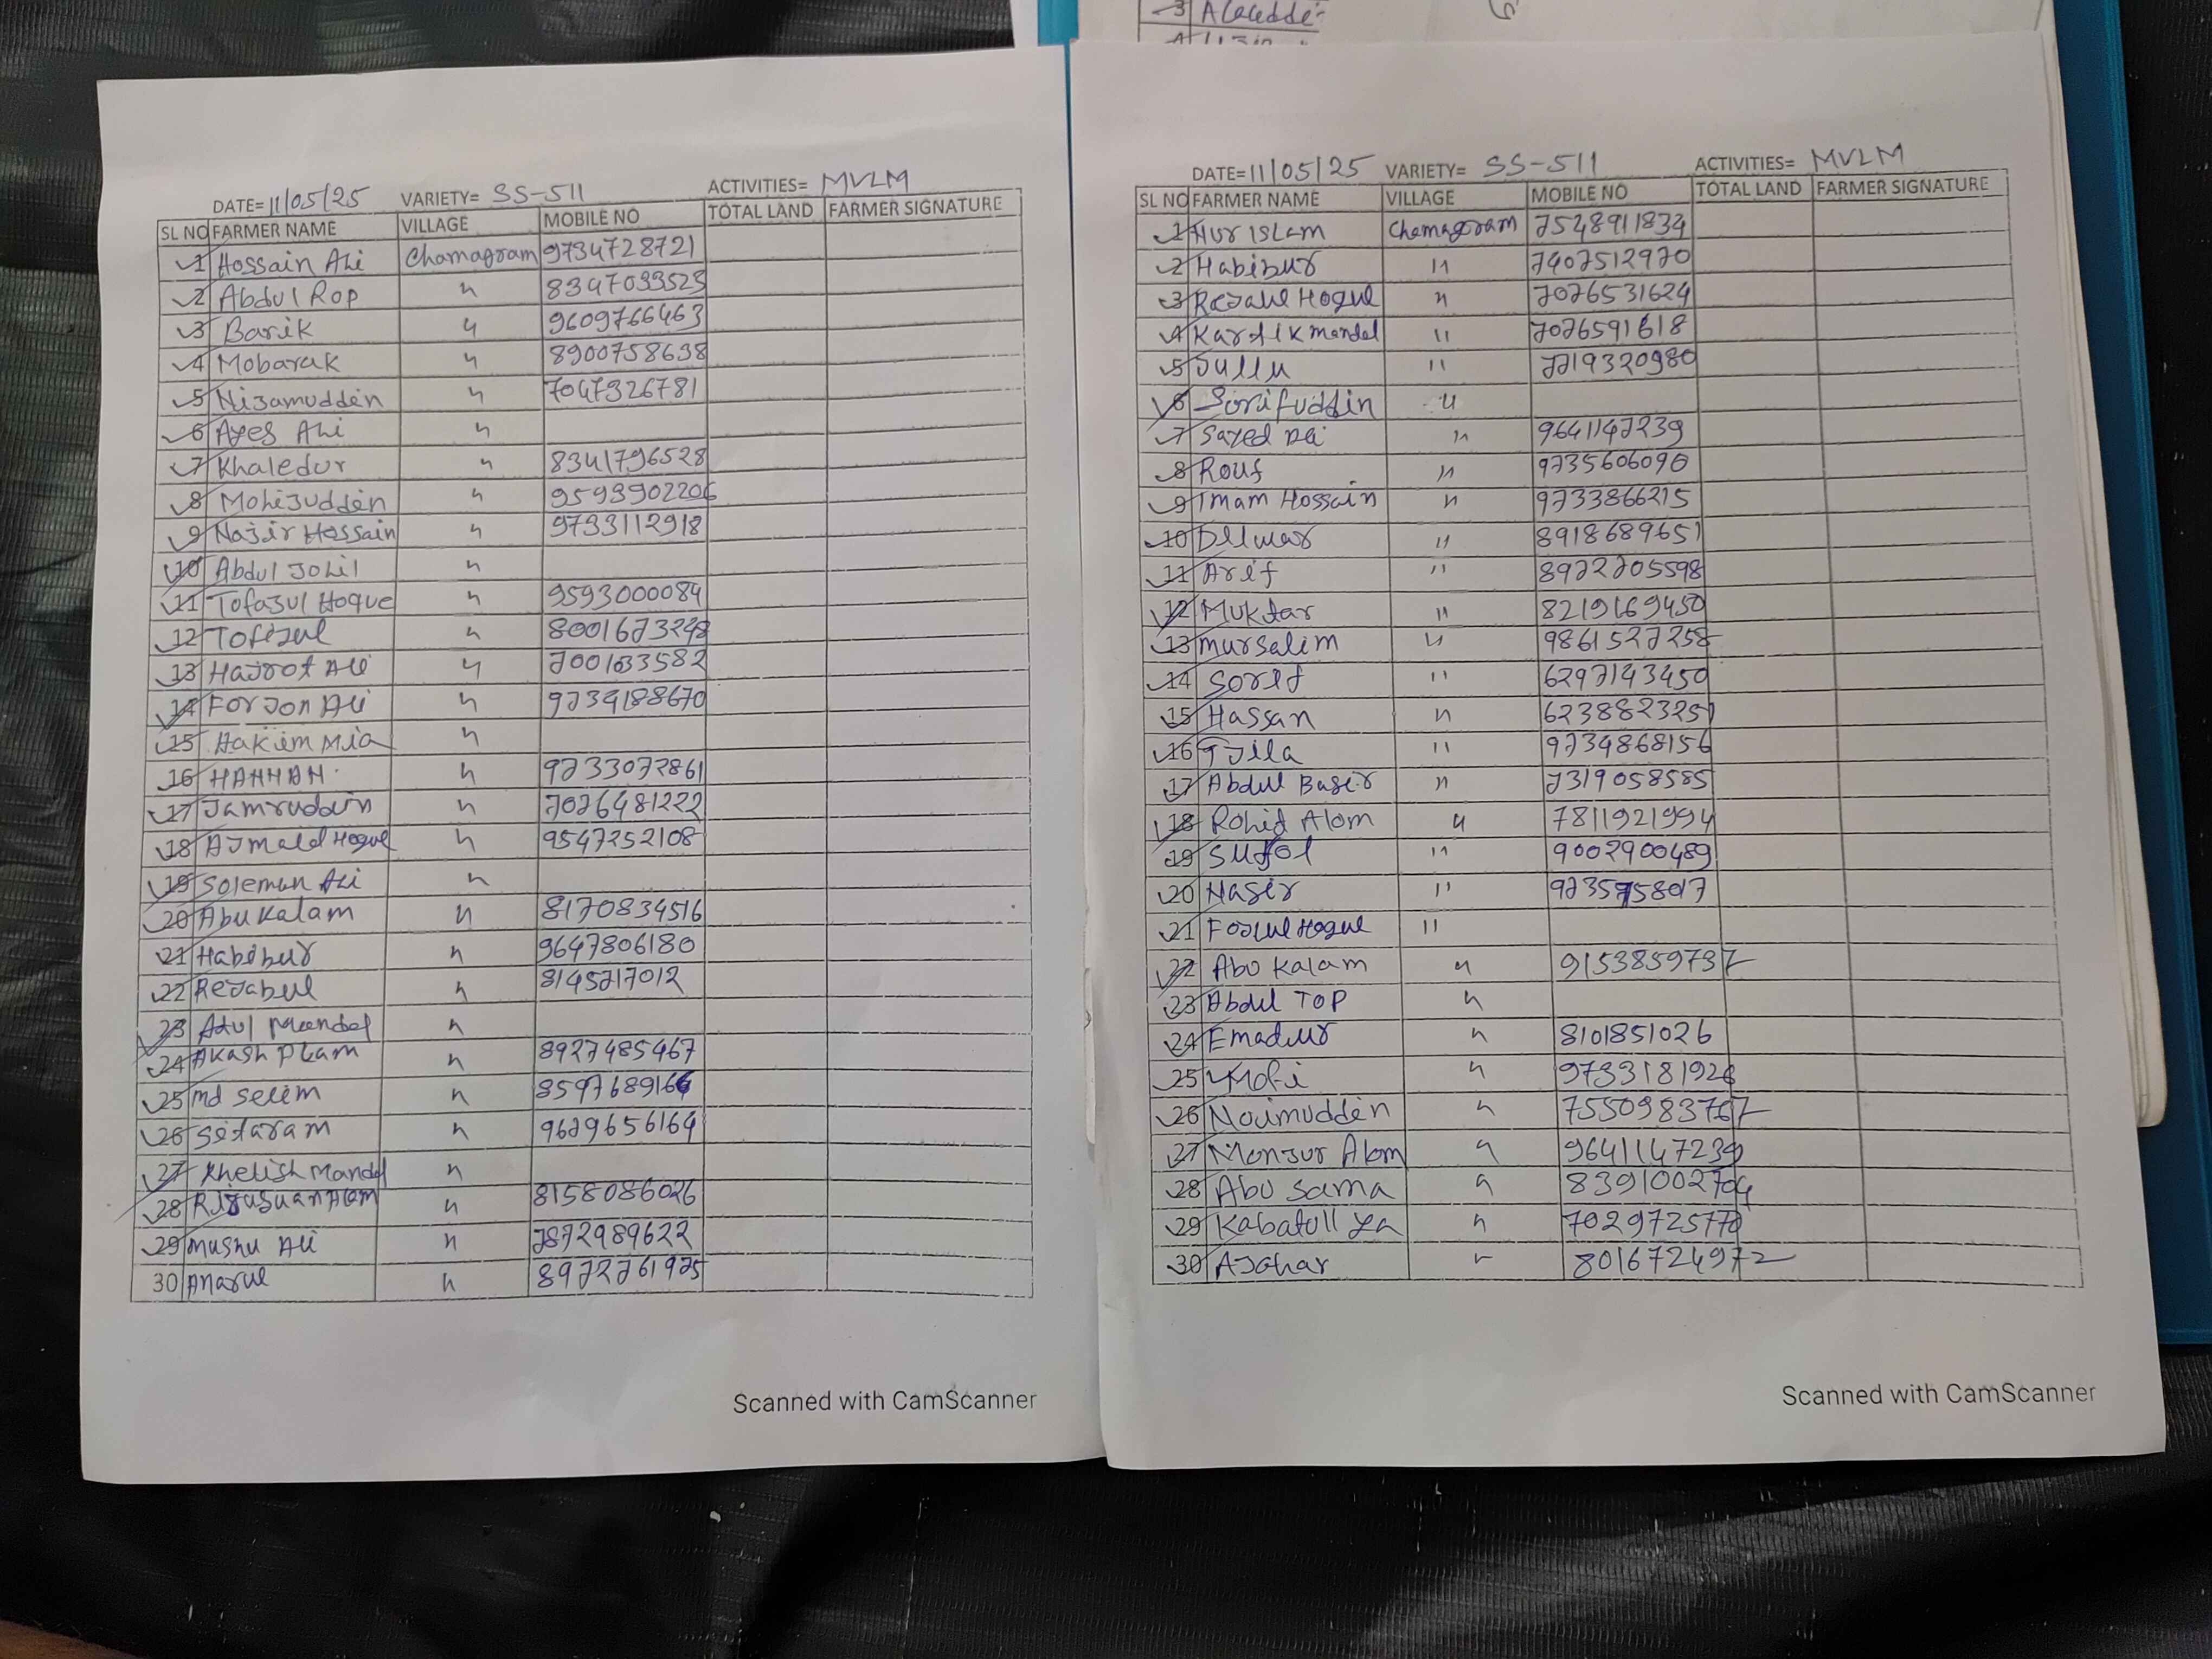 3 Alaeddi
DATE= 11/05/25 VARIETY= SS-511 ACTIVITIES= MVLM
SL NO FARMER NAME VILLAGE MOBILE NO TOTAL LAND FARMER SIGNATURE
1 Hossain Ali Chamagram 9734728721
2 Abdul Rop " 8347033523
3 Barik " 9609766463
4 Mobarak " 8900758638
5 Nizamuddin " 7047326781
6 Ayes Ali "
7 Khaledur " 8341796528
8 Mohizuddin " 9593902206
9 Nazir Hossain " 9733112918
10 Abdul Johil "
11 Tofazul Hoque " 9593000084
12 Tofizul " 8001673248
13 Hajrot Ali " 7001633582
14 Forjon Ali " 9734188670
15 Hakim Mia "
16 HANNAN " 9733072861
17 Jamruddin " 7076481222
18 AJmald Hoque " 9547252108
19 Soleman Ali "
20 Abu Kalam " 8170834516
21 Habibur " 9647806180
22 Rejabul " 8145717012
23 Atul Mandol "
24 Akash " 8927485467
25 md Selim " 8597689166
26 Sitaram " 9679656164
27 Khelish Mandol "
28 Alam " 8158086026
29 Mushu Ali " 7872989622
30 Anarul " 8972761975
DATE= 11/05/25 VARIETY= SS-511 ACTIVITIES= MVLM
SL NO FARMER NAME VILLAGE MOBILE NO TOTAL LAND FARMER SIGNATURE
1 Nur ISLam Chamagram 7548911834
2 Habibur " 7407512970
3 Rejaul Hoque " 7076531624
4 Kartik Mondal " 7076591618
5 Jullu " 7719320980
6 Sorifuddin "
7 Sayed Ali " 9641147239
8 Rouf " 9735606090
9 Imam Hossain " 9733866215
10 Dilwar " 8918689651
11 Arif " 8972705598
12 Muktar " 8219169450
13 Mursalim " 9861527258
14 Sorif " 6297143450
15 Hassan " 6238823251
16 Tjila " 9734868156
17 Abdul Basir " 7319058585
18 Rohid Alom " 7811921994
19 Sufol " 9002900489
20 Nasir " 9735758017
21 Fojlul Hoque "
22 Abu Kalam " 9153859737
23 Abdul TOP "
24 Emadur " 8101851026
25 Mofi " 9733181926
26 Noimuddin " 7550983767
27 Monjur Alom " 9641147239
28 Abu Sama " 8391002704
29 Kabatull ya " 7029725770
30 AJahar " 8016724972
Scanned with CamScanner
Scanned with CamScanner